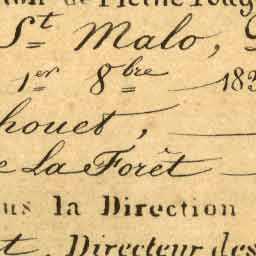 de Pleine Foug
St Malo,
1er 8bre — 183
houet, —
e La Forêt —
us la Direction
t, Directeur des